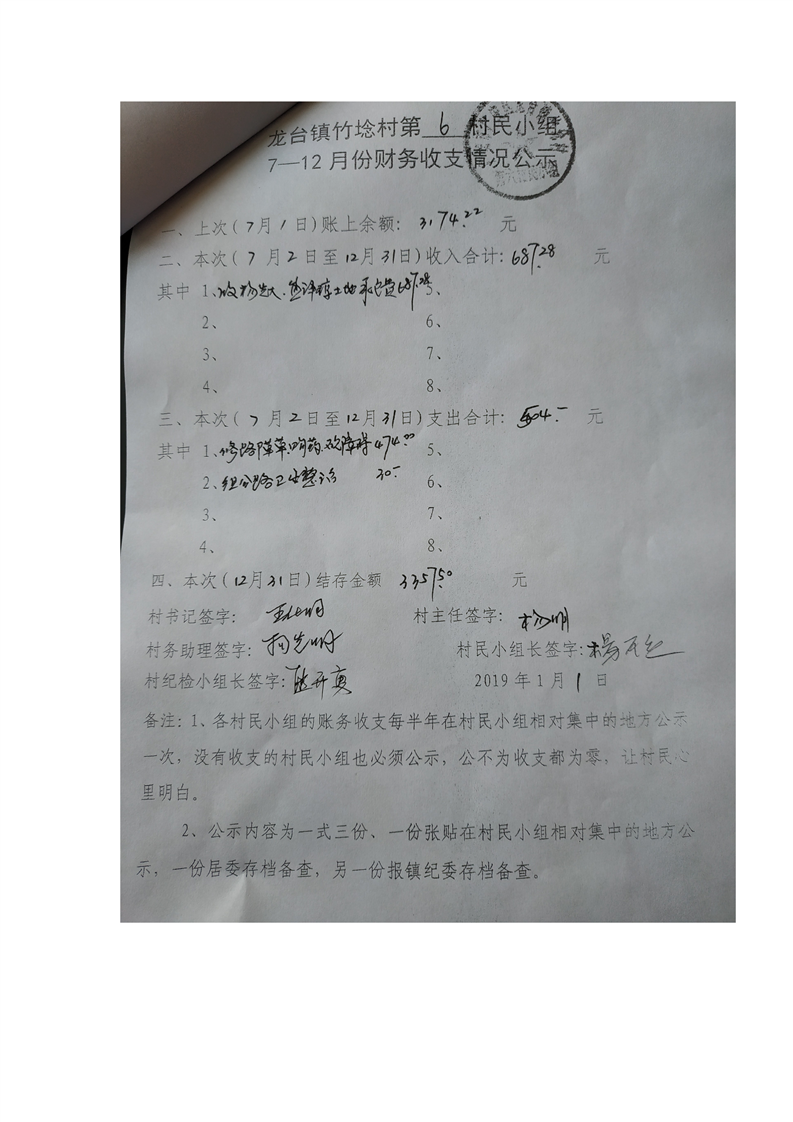 龙台镇竹埝村第 6 村民小组
7—12月份财务收支情况公示
一、上次(7月1日)账上余额：3174.22 元
二、本次(7月2日至12月31日)收入合计：687.28 元
其中 1、收 土地承包费687.28 5、
2、 6、
3、 7、
4、 8、
三、本次(7月2日至12月31日)支出合计：504.- 元
其中 1、修路 草 药 474.00 5、
2、组公路卫生整治 30.- 6、
3、 7、
4、 8、
四、本次(12月31日)结存金额 3357.50 元
村书记签字： 村主任签字：杨明
村务助理签字： 村民小组长签字：杨
村纪检小组长签字： 2019年1月1日
备注：1、各村民小组的账务收支每半年在村民小组相对集中的地方公示
一次，没有收支的村民小组也必须公示，公不为收支都为零，让村民心
里明白。
2、公示内容为一式三份、一份张贴在村民小组相对集中的地方公
示，一份居委存档备查，另一份报镇纪委存档备查。